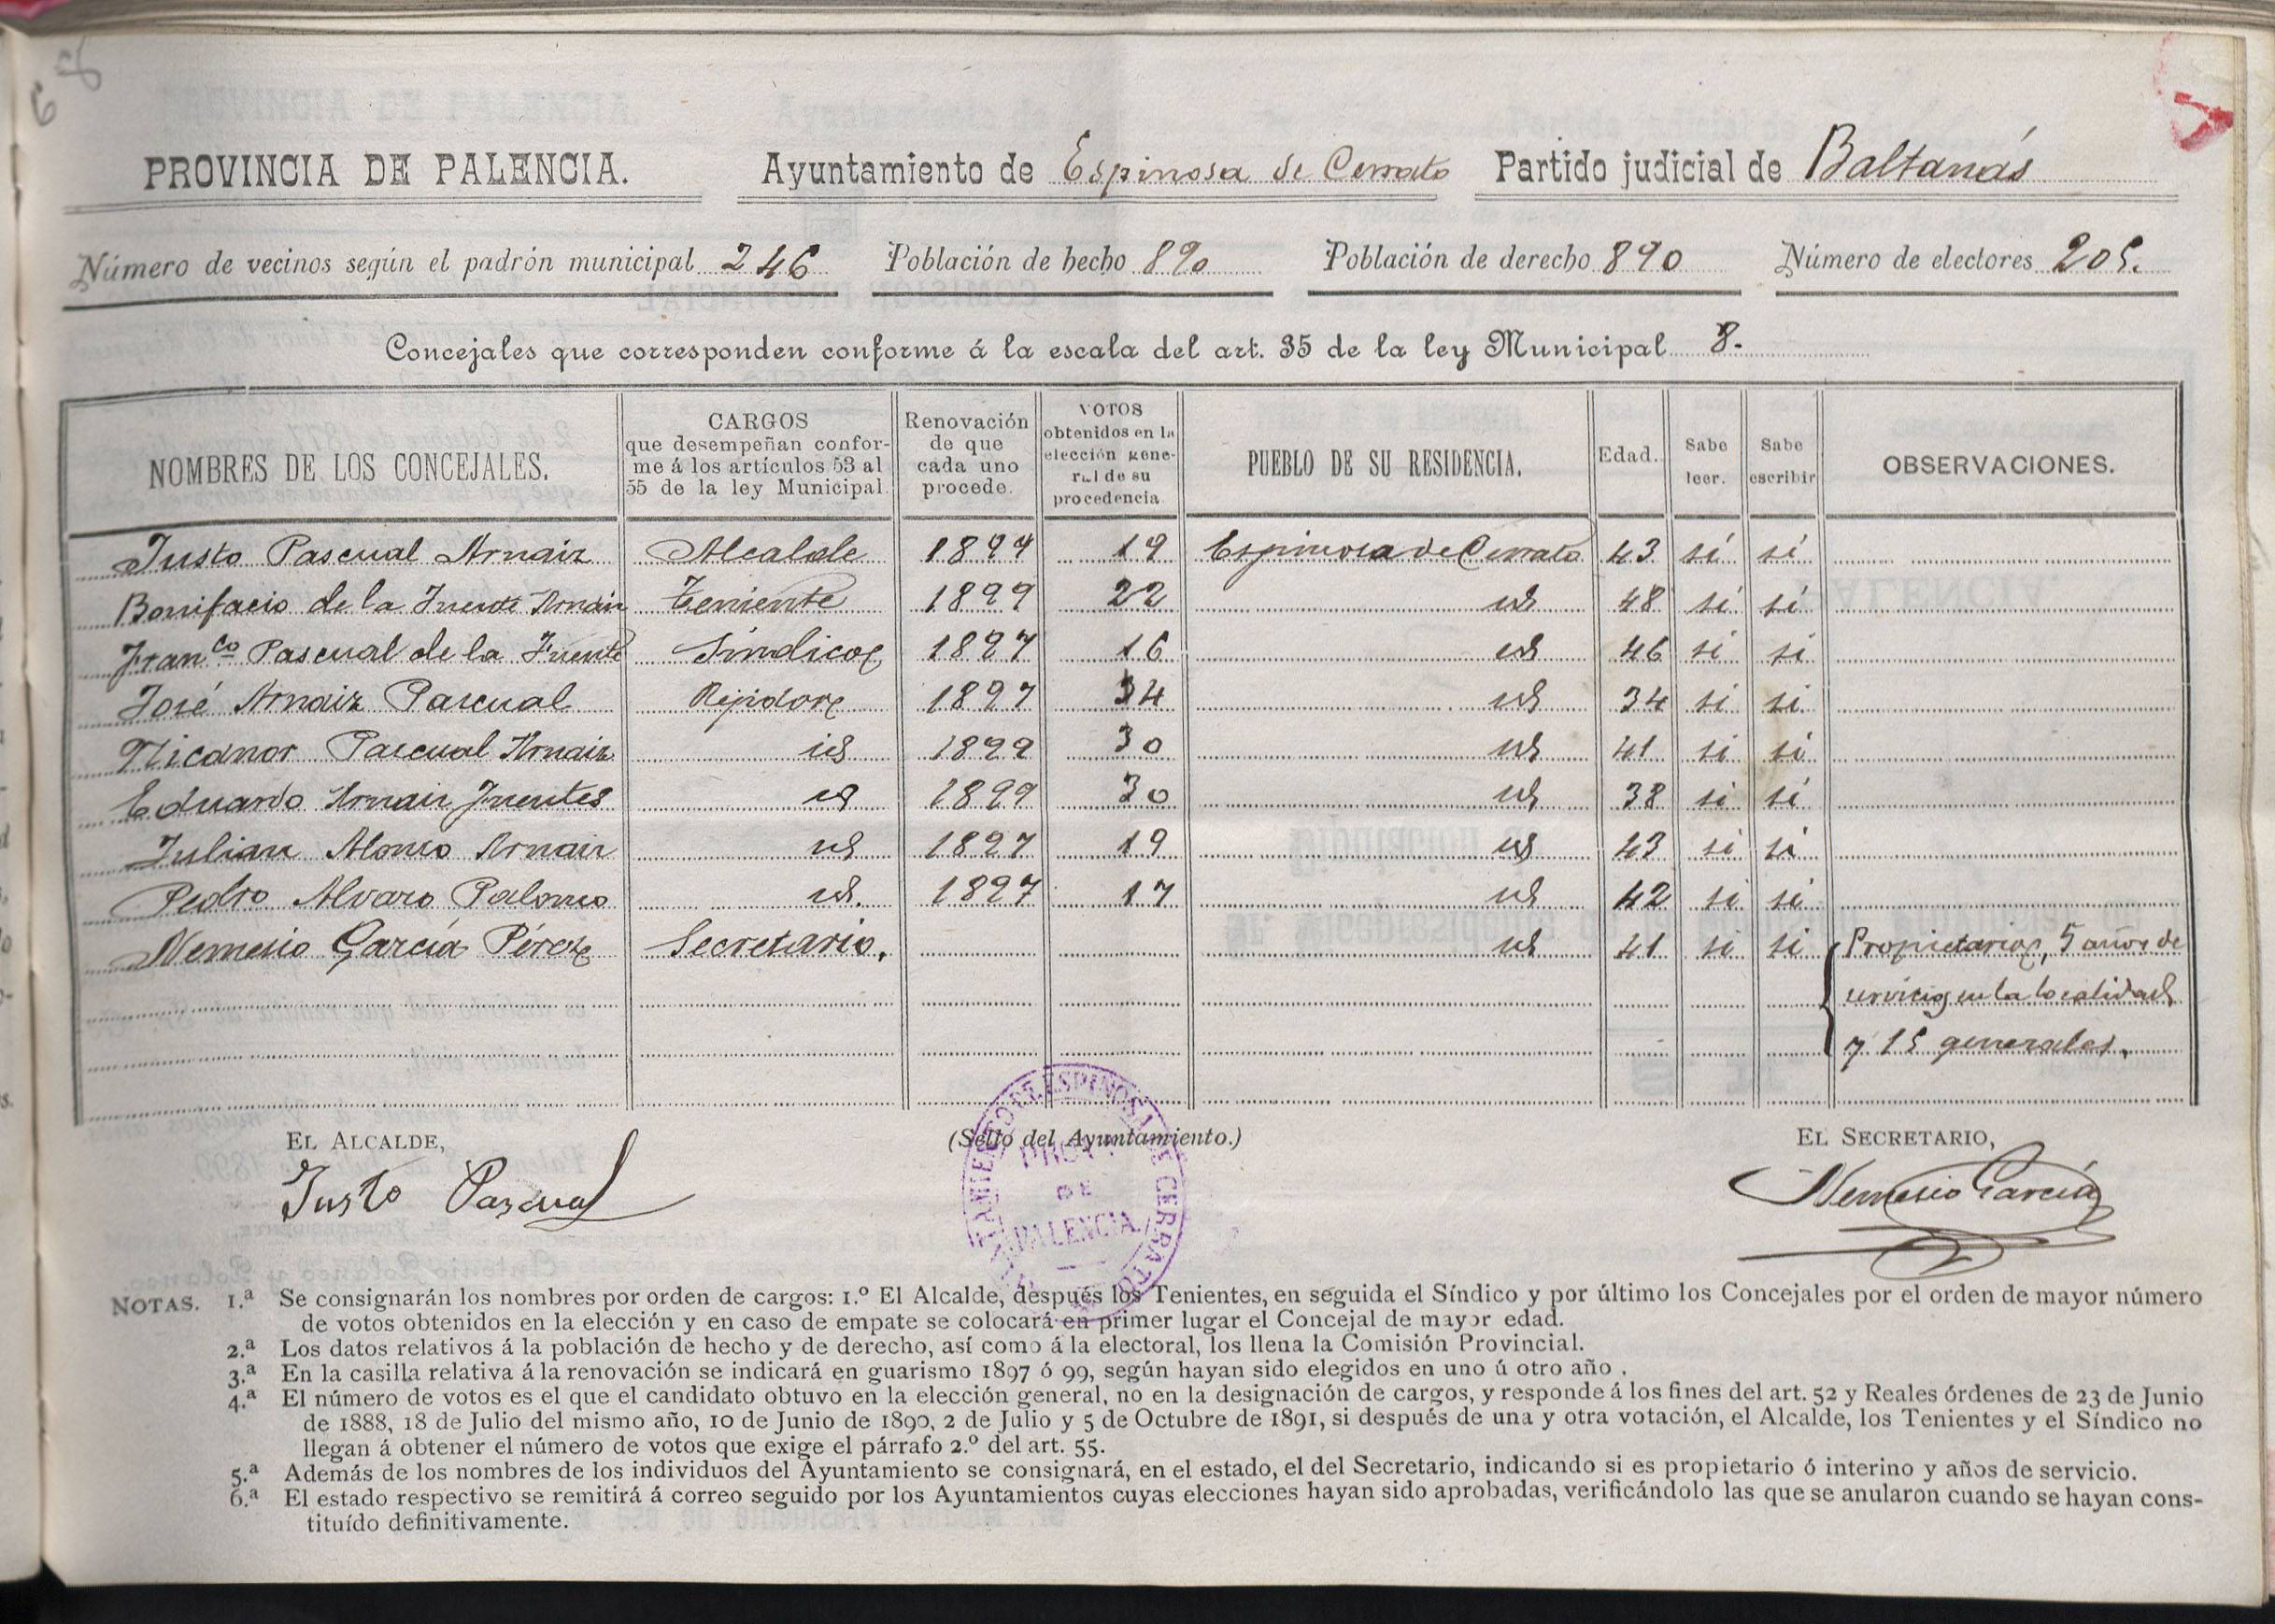 PROVINCIA DE PALENCIA. Ayuntamiento de Espinosa de Cerrato Partido judicial de Baltanás
Número de vecinos según el padrón municipal 246 Población de hecho 890 Población de derecho 890 Número de electores 205.
Concejales que corresponden conforme á la escala del art. 35 de la ley Municipal 8.
NOMBRES DE LOS CONCEJALES. CARGOS que desempeñan conforme á los artículos 53 al 55 de la ley Municipal. Renovación de que cada uno procede. VOTOS obtenidos en la elección general de su procedencia PUEBLO DE SU RESIDENCIA. Edad. Sabe leer. Sabe escribir OBSERVACIONES.
Justo Pascual Arnaiz Alcalde 1897 19 Espinosa de Cerrato 43 sí sí
Bonifacio de la Fuente Arnaiz Teniente 1899 22 id 48 sí sí
Fran.co Pascual de la Fuente Síndico 1897 16 id 46 si si
José Arnaiz Pascual Rejidor 1897 34 id 34 si si
Nicanor Pascual Arnaiz id 1899 30 id 41 si si
Eduardo Arnaiz Fuentes id 1899 30 id 38 si si
Julian Alonso Arnaiz id 1897 19 id 43 si si
Pedro Alvaro Palomo id. 1897 17 id 42 si si
Nemesio García Pérez Secretario. id 41 si si Propietario, 5 años de
servicio en la localidad
y 15 generales.
EL ALCALDE, (Sello del Ayuntamiento.) EL SECRETARIO,
Justo Pascual Nemesio García
AYUNTAMIENTO DE ESPINOSA DE CERRATO
PROV.ª
DE
PALENCIA.
NOTAS. 1.ª Se consignarán los nombres por orden de cargos: 1.º El Alcalde, después los Tenientes, en seguida el Síndico y por último los Concejales por el orden de mayor número
de votos obtenidos en la elección y en caso de empate se colocará en primer lugar el Concejal de mayor edad.
2.ª Los datos relativos á la población de hecho y de derecho, así como á la electoral, los llena la Comisión Provincial.
3.ª En la casilla relativa á la renovación se indicará en guarismo 1897 ó 99, según hayan sido elegidos en uno ú otro año.
4.ª El número de votos es el que el candidato obtuvo en la elección general, no en la designación de cargos, y responde á los fines del art. 52 y Reales órdenes de 23 de Junio
de 1888, 18 de Julio del mismo año, 10 de Junio de 1890, 2 de Julio y 5 de Octubre de 1891, si después de una y otra votación, el Alcalde, los Tenientes y el Síndico no
llegan á obtener el número de votos que exige el párrafo 2.º del art. 55.
5.ª Además de los nombres de los individuos del Ayuntamiento se consignará, en el estado, el del Secretario, indicando si es propietario ó interino y años de servicio.
6.ª El estado respectivo se remitirá á correo seguido por los Ayuntamientos cuyas elecciones hayan sido aprobadas, verificándolo las que se anularon cuando se hayan cons-
tituído definitivamente.